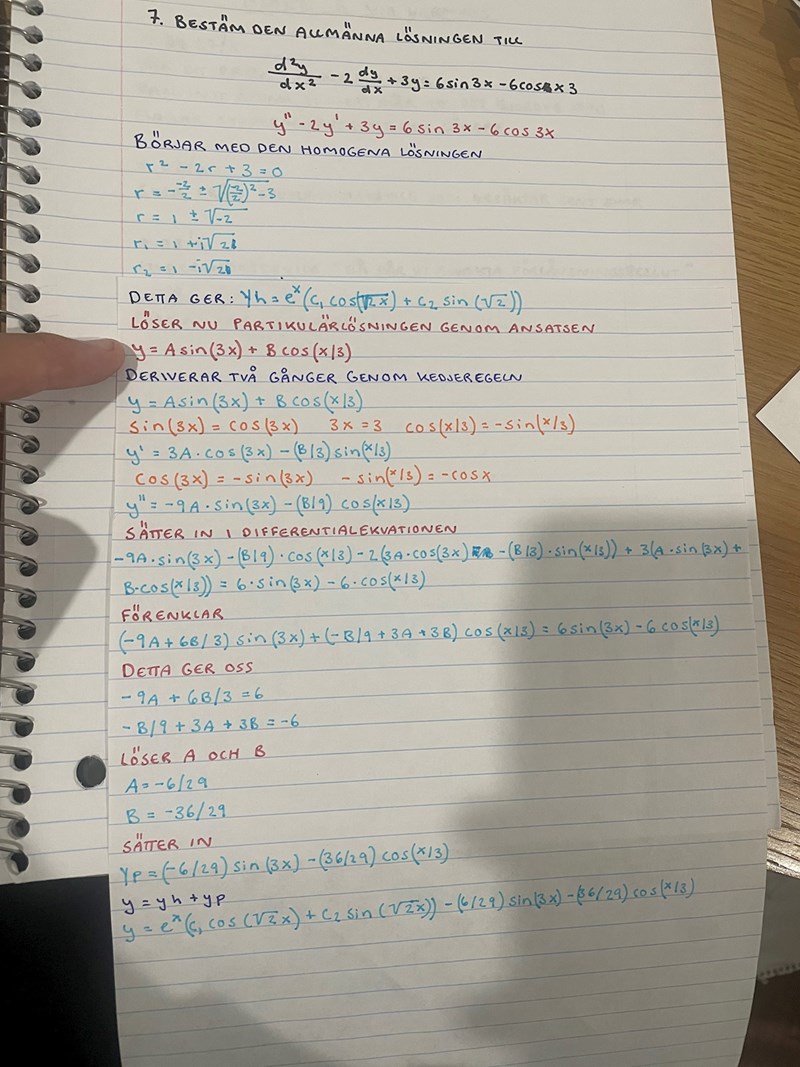 7. BESTÄM DEN ALLMÄNNA LÖSNINGEN TILL
d²y/dx² - 2 dy/dx + 3y = 6 sin 3x - 6 cos x 3
y'' - 2y' + 3y = 6 sin 3x - 6 cos 3x
BÖRJAR MED DEN HOMOGENA LÖSNINGEN
r² - 2r + 3 = 0
r = - -2/2 ± √((-2/2)² - 3
r = 1 ± √-2
r₁ = 1 + i√2
r₂ = 1 - i√2
DETTA GER: Yh = eˣ(C₁ cos(√2x) + C₂ sin(√2))
LÖSER NU PARTIKULÄRLÖSNINGEN GENOM ANSATSEN
y = A sin(3x) + B cos(x/3)
DERIVERAR TVÅ GÅNGER GENOM KEDJEREGELN
y = A sin(3x) + B cos(x/3)
sin(3x) = cos(3x) 3x = 3 cos(x/3) = -sin(x/3)
y' = 3A · cos(3x) - (B/3) sin(x/3)
cos(3x) = -sin(3x) -sin(x/3) = -cosx
y'' = -9A · sin(3x) - (B/9) cos(x/3)
SÄTTER IN I DIFFERENTIALEKVATIONEN
-9A · sin(3x) - (B/9) · cos(x/3) - 2(3A · cos(3x) - (B/3) · sin(x/3)) + 3(A · sin(3x) +
B · cos(x/3)) = 6 · sin(3x) - 6 · cos(x/3)
FÖRENKLAR
(-9A + 6B/3) sin(3x) + (-B/9 + 3A + 3B) cos(x/3) = 6 sin(3x) - 6 cos(x/3)
DETTA GER OSS
-9A + 6B/3 = 6
-B/9 + 3A + 3B = -6
LÖSER A OCH B
A = -6/29
B = -36/29
SÄTTER IN
Yp = (-6/29) sin(3x) - (36/29) cos(x/3)
y = yh + yp
y = eˣ(C₁ cos(√2x) + C₂ sin(√2x)) - (6/29) sin(3x) - (36/29) cos(x/3)